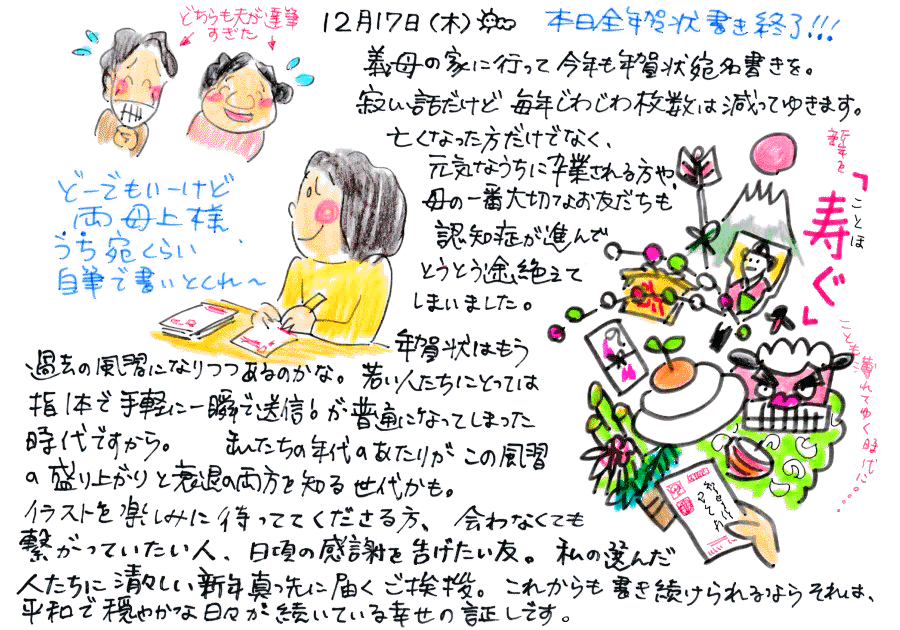 どちらも夫が達筆
すぎた
12月17日(木)
本日全年賀状書き終了!!!
義母の家に行って今年も年賀状宛名書きを。
寂しい話だけど毎年じわじわ枚数は減ってゆきます。
亡くなった方だけでなく、
元気なうちに卒業される方や、
母の一番大切なお友だちも
認知症が進んで
とうとう途絶えて
しまいました。
どーでもいーけど
両母上様、
うち宛くらい
自筆で書いとくれ〜
新年を
「寿ぐ」
ことほ
ことも薄れてゆく時代に……
年賀状はもう
過去の風習になりつつあるのかな。若い人たちにとっては
指1本で手軽に一瞬で送信!が普通になってしまった
時代ですから。
私たちの年代のあたりがこの風習
の盛り上がりと衰退の両方を知る世代かも。
イラストを楽しみに待っててくださる方、会わなくても
繋がっていたい人、日頃の感謝を告げたい友。私の選んだ
人たちに清々しい新年真っ先に届くご挨拶。これからも書き続けられるならそれは、
平和で穏やかな日々が続いている幸せの証しです。